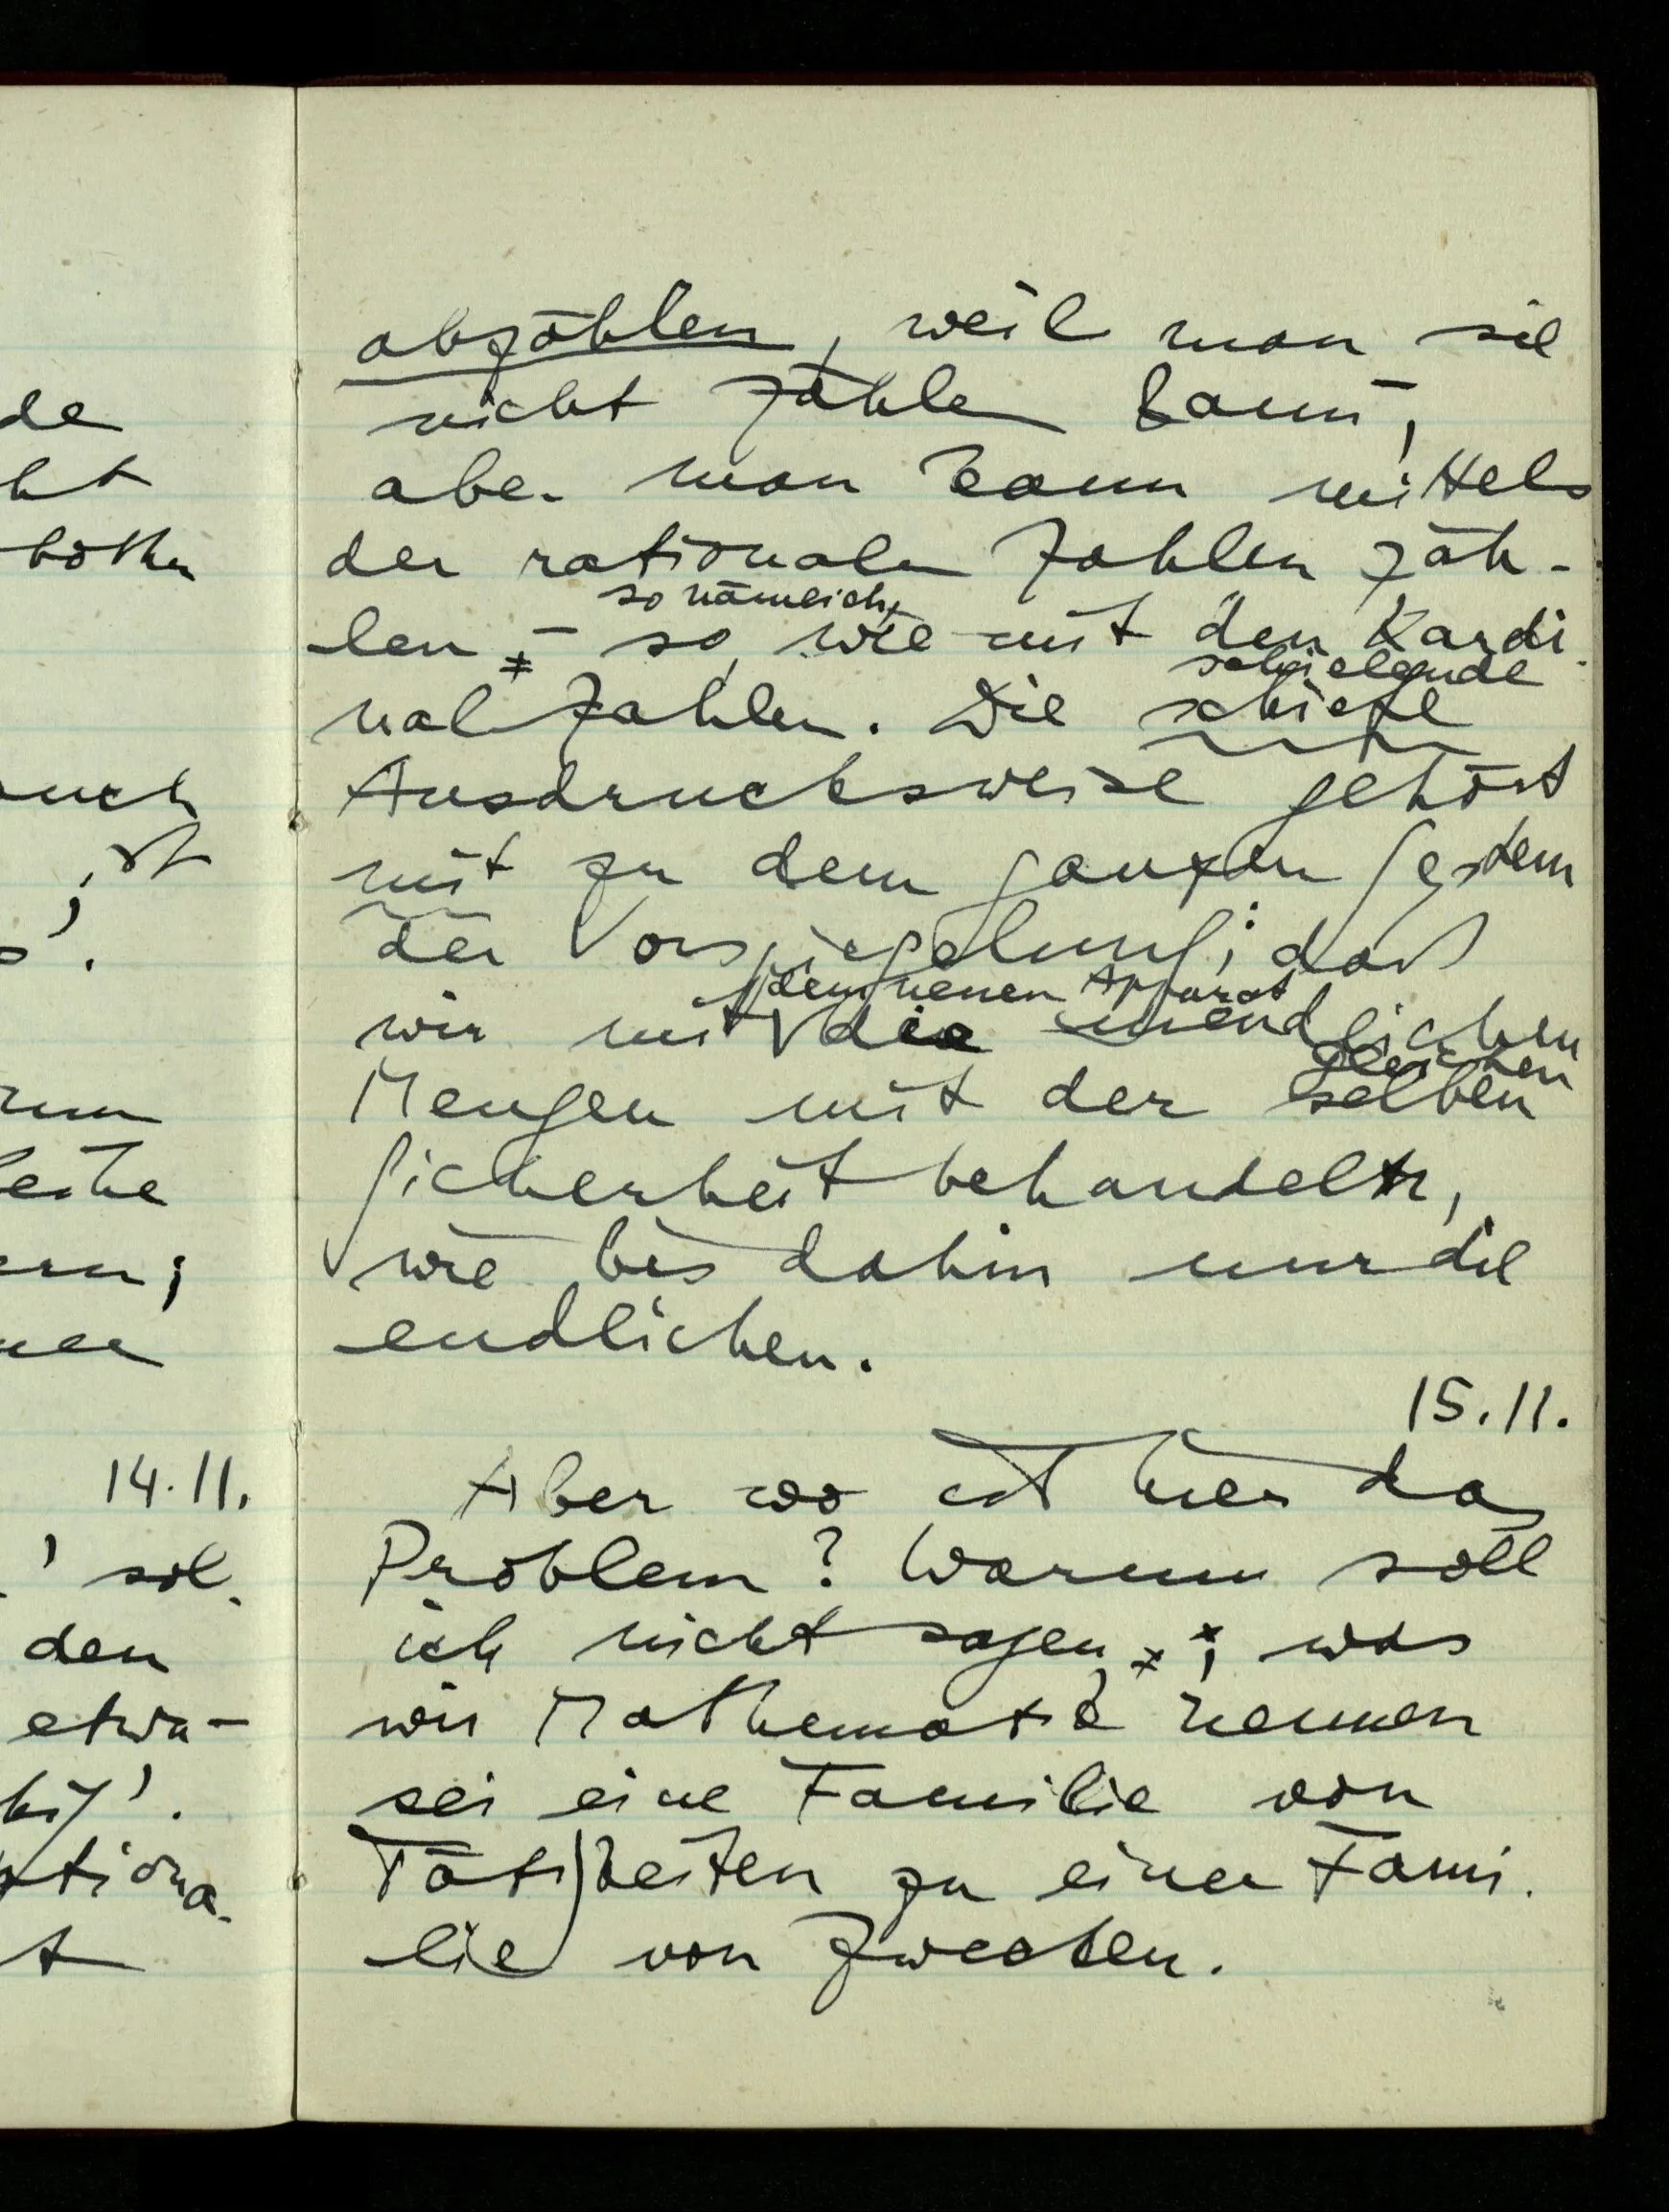 de
ht
uch
ist
14.11.
sol-
den
etwa-
t
abzählen, weil man sie
nicht zählen kann,
aber man kann mittels
der rationalen Zahlen zäh-
so nämlich,
len – so, wie mit den Kardi-
schielende
nal Zahlen. Die schiefe
Ausdrucksweise gehört
mit zu dem ganzen System
der Vorspiegelung; daß
dem neuen Apparat
wir mit die unendlichen
gleichen
Mengen mit der selben
Sicherheit behandeln,
wie bis dahin nur die
endlichen.
15.11.
Aber wo ist hier das
Problem? Warum soll
ich nicht sagen, ; was
wir Mathematik nennen
sei eine Familie von
Tätigkeiten zu einer Fami-
lie von Zwecken.